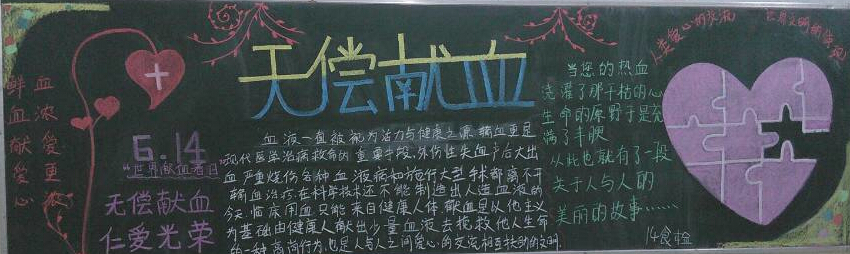 无偿献血
鲜血献爱心
血浓爱更浓
6.14
"世界献血者日"
无偿献血
仁爱光荣
血液一直被视为活力与健康之源,输血更是
现代医学治病救命的重要手段,外伤性失血产后大出
血严重烧伤各种血液病和施行大型手术都离不开
输血治疗,在科学技术还不能制造出人造血液的
今天,临床用血只能来自健康人体,献血是以他主义
为基础由健康人献出少量血液去挽救他人生命
的一种高尚行为,也是人与人之间爱心的交流相互扶助的文明.
当您的热血
浇灌了那干枯的心
生命的原野于是充
满了丰腴
从此也就有了一段
关于人与人的
美丽的故事......
人类爱心的交流
14食检